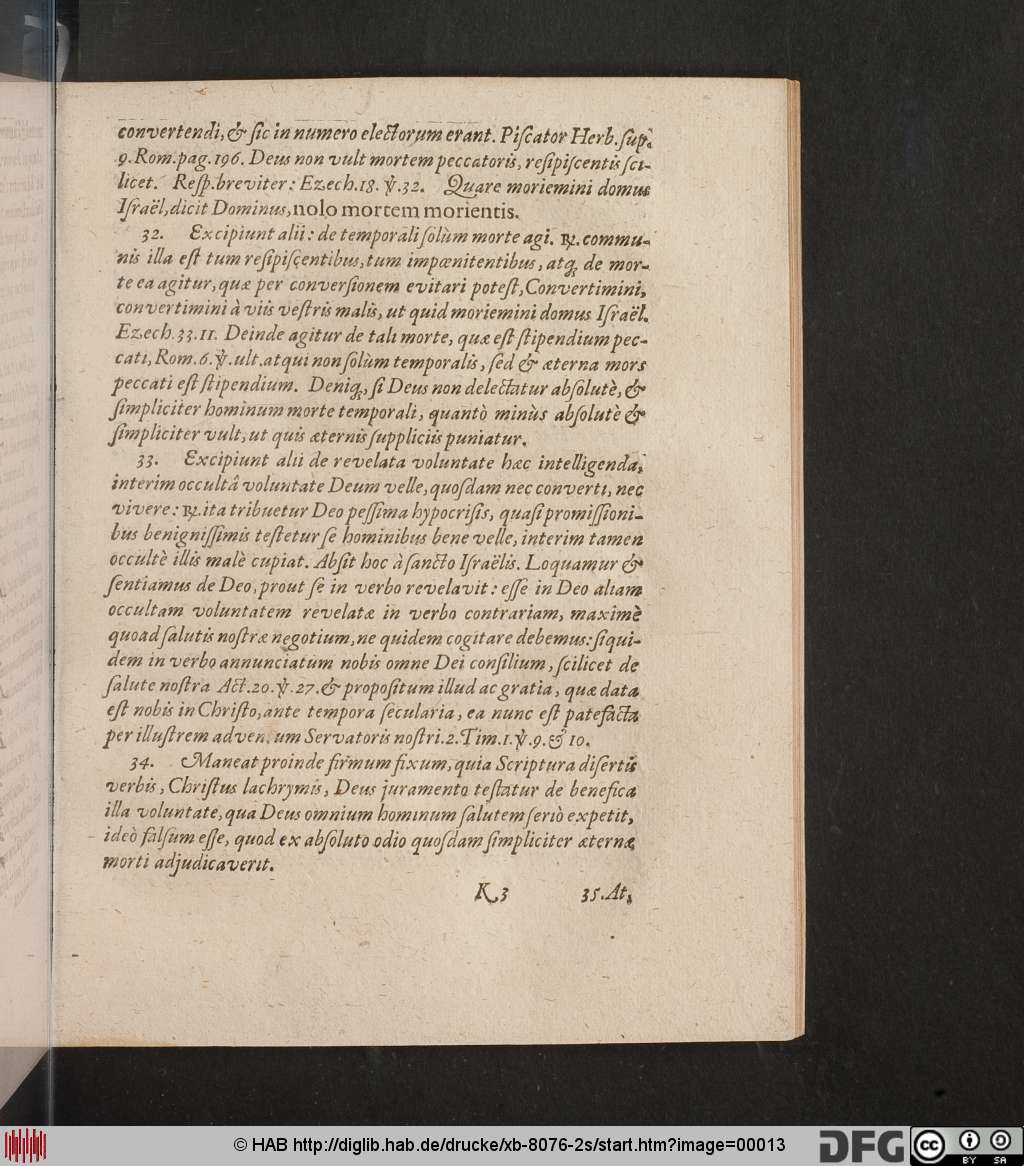 convertendi, & ſic in numero electorum erant. Piſcator Herb. ſup.
9. Rom. pag. 196. Deus non vult mortem peccatoris, reſipiſcentis ſci-
licet. Reſp. breviter: Ezech. 18. ℣. 32. Quare moriemini domus
Iſraël, dicit Dominus, nolo mortem morientis.
32. Excipiunt alii: de temporali ſolùm morte agi. ℞. commu-
nis illa eſt tum reſipiſcentibus, tum impœnitentibus, atq; de mor-
te ea agitur, quæ per converſionem evitari poteſt, Convertimini,
convertimini à viis veſtris malis, ut quid moriemini domus Iſraël.
Ezech. 33. 11. Deinde agitur de tali morte, quæ eſt ſtipendium pec-
cati, Rom. 6. ℣. ult. atqui non ſolùm temporalis, ſed & æterna mors
peccati eſt ſtipendium. Deniq;, ſi Deus non delectatur abſolutè, &
ſimpliciter hominum morte temporali, quantò minùs abſolutè &
ſimpliciter vult, ut quis æternis ſuppliciis puniatur.
33. Excipiunt alii de revelata voluntate hæc intelligenda,
interim occultâ voluntate Deum velle, quoſdam nec converti, nec
vivere: ℞. ita tribuetur Deo peſſima hypocriſis, quaſi promiſſioni-
bus benigniſſimis teſtetur ſe hominibus bene velle, interim tamen
occultè illis malè cupiat. Abſit hoc à ſancto Iſraëlis. Loquamur &
ſentiamus de Deo, prout ſe in verbo revelavit: eſſe in Deo aliam
occultam voluntatem revelatæ in verbo contrariam, maximè
quoad ſalutis noſtræ negotium, ne quidem cogitare debemus: ſiqui-
dem in verbo annunciatum nobis omne Dei conſilium, ſcilicet de
ſalute noſtra Act. 20. ℣. 27. & propoſitum illud ac gratia, quæ data
eſt nobis in Chriſto, ante tempora ſecularia, ea nunc eſt patefacta
per illuſtrem adventum Servatoris noſtri. 2. Tim. 1. ℣. 9. & 10.
34. Maneat proinde firmum fixum, quia Scriptura diſertis
verbis, Chriſtus lachrymis, Deus juramento teſtatur de benefica
illa voluntate, qua Deus omnium hominum ſalutem ſeriò expetit,
ideò falſum eſſe, quod ex abſoluto odio quoſdam ſimpliciter æternæ
morti adjudicaverit.
K 3 35. At,
© HAB http://diglib.hab.de/drucke/xb-8076-2s/start.htm?image=00013
DFG
cc BY SA